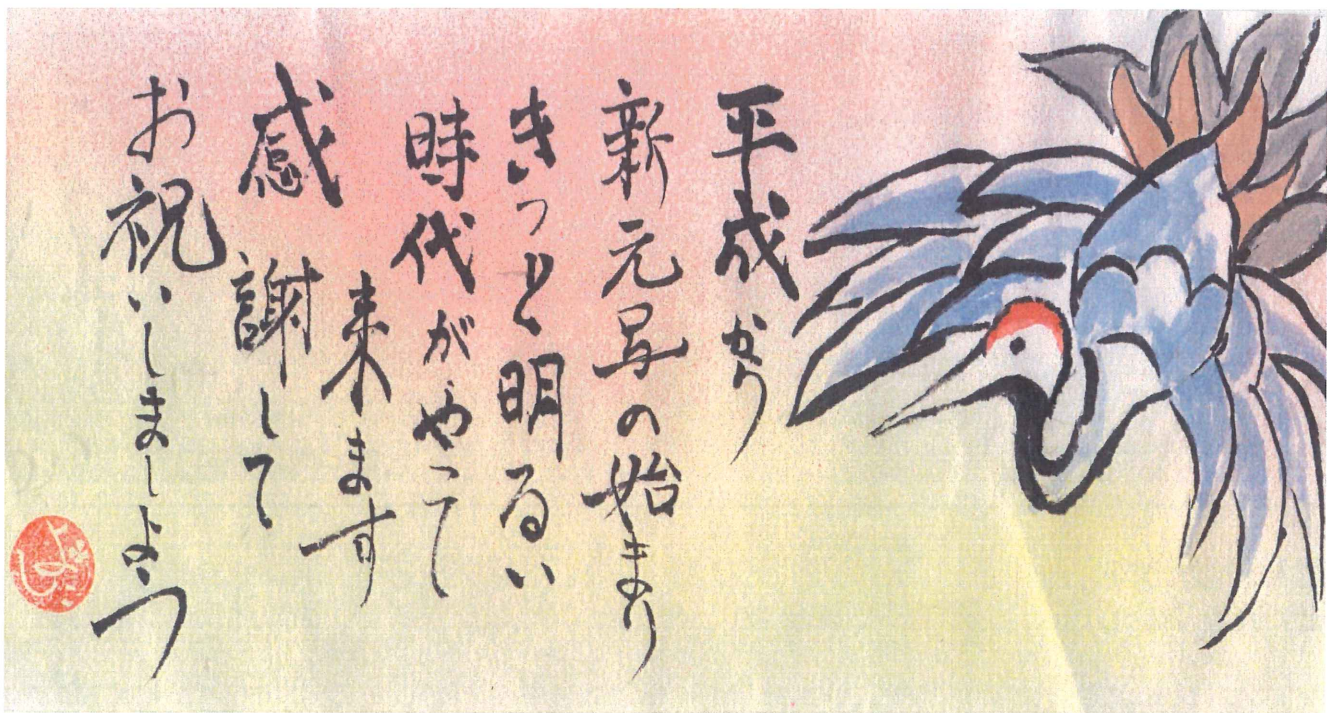 平成から
新元号の始まり
きっと明るい
時代がやって
来ます
感謝して
お祝いしましょう